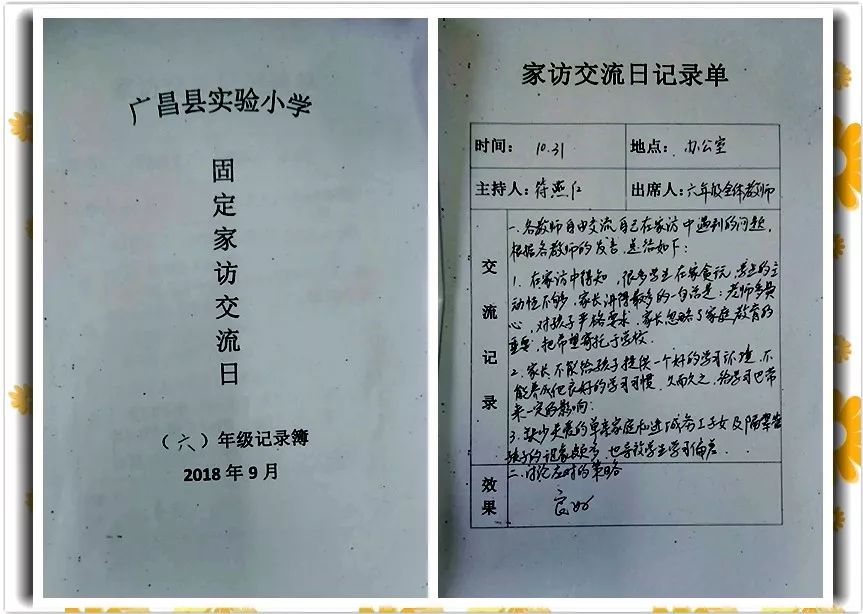 广昌县实验小学
固定家访交流日
（六）年级记录簿
2018年9月
家访交流日记录单
时间： 10.31
地点： 办公室
主持人：符燕
出席人：六年级全体教师
交流记录
一、各教师自由交流自己在家访中遇到的问题，
根据各教师的发言，总结如下：
1、在家访中得知，很多学生在家贪玩，学习的主
动性不够，家长讲得最多的一句话是：老师多费
心，对孩子严格要求，家长忽略了家庭教育的
重要，把希望寄托于学校。
2、家长不能给孩子提供一个好的学习环境，不
能养成他良好的学习习惯，久而久之，给学习也带
来一定的影响；
3、缺少关爱的单亲家庭和进城务工子女及隔辈
孩子的 也导致学生学习偏差。
二、讨论应对的策略
效果
良好